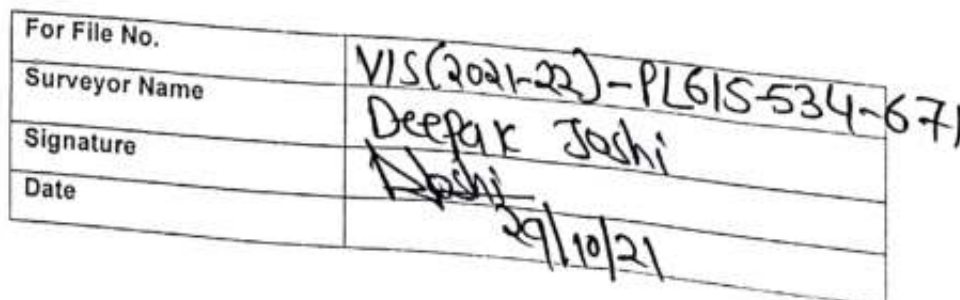 For File No. VIS(2021-22)-PL615-534-671
Surveyor Name Deepak Joshi
Signature DJoshi
Date 29/10/21